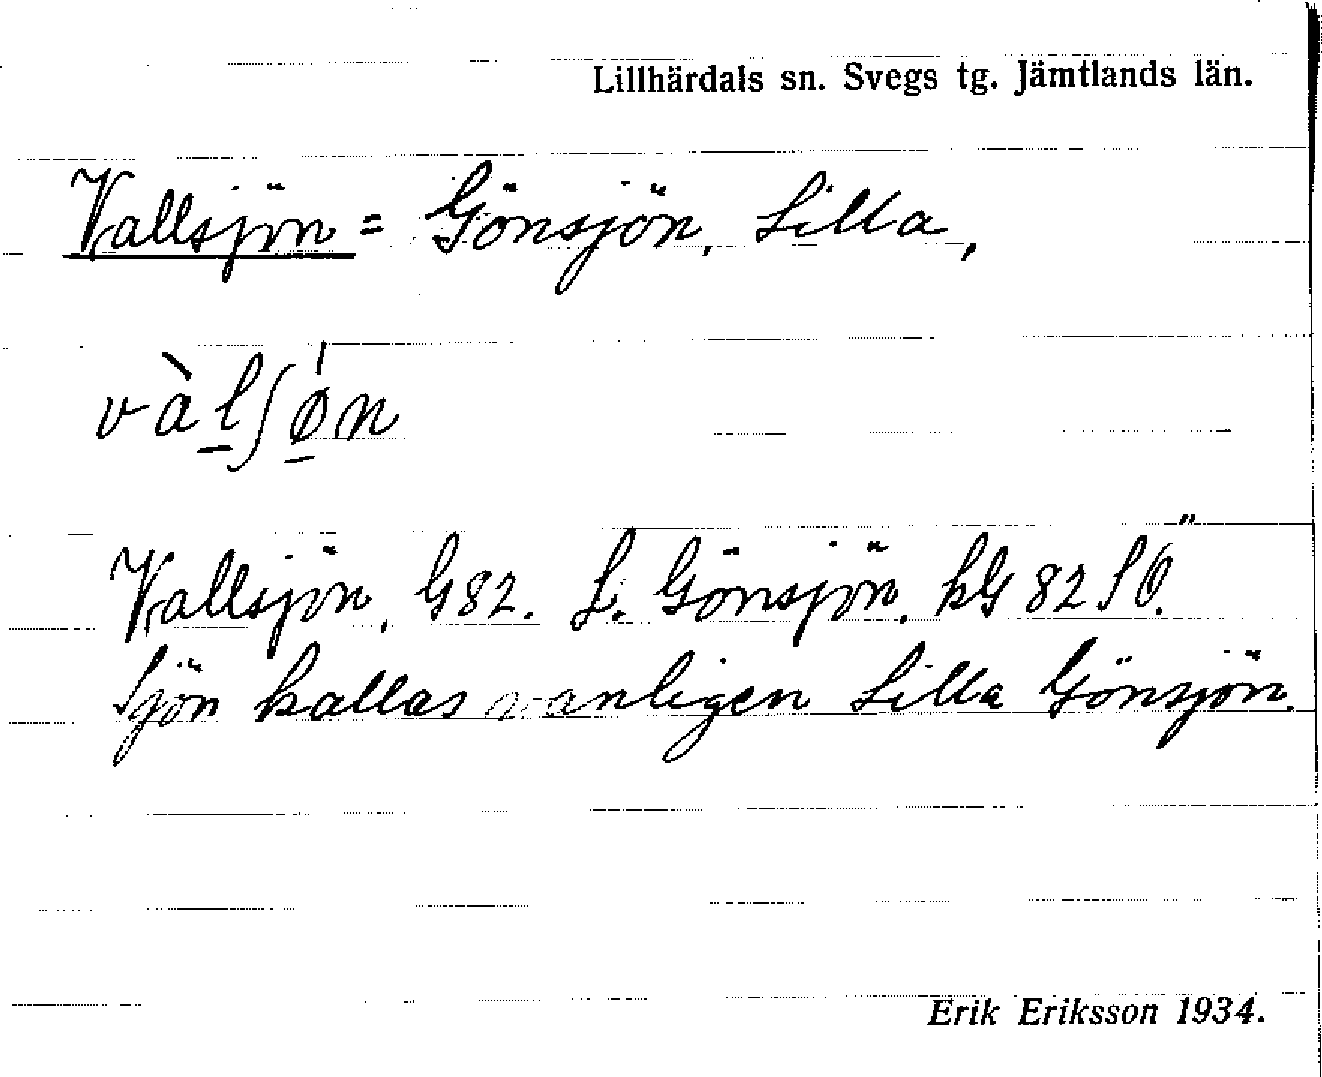 Lillhärdals sn. Svegs tg. Jämtlands län.
Vallsjön = Gönsjön, Lilla,
vàl̲ʃǿ̲n
Vallsjön, G82. L. Gönsjön, kG 82 SÖ.
Sjön kallas vanligen Lilla Gönsjön.
Erik Eriksson 1934.